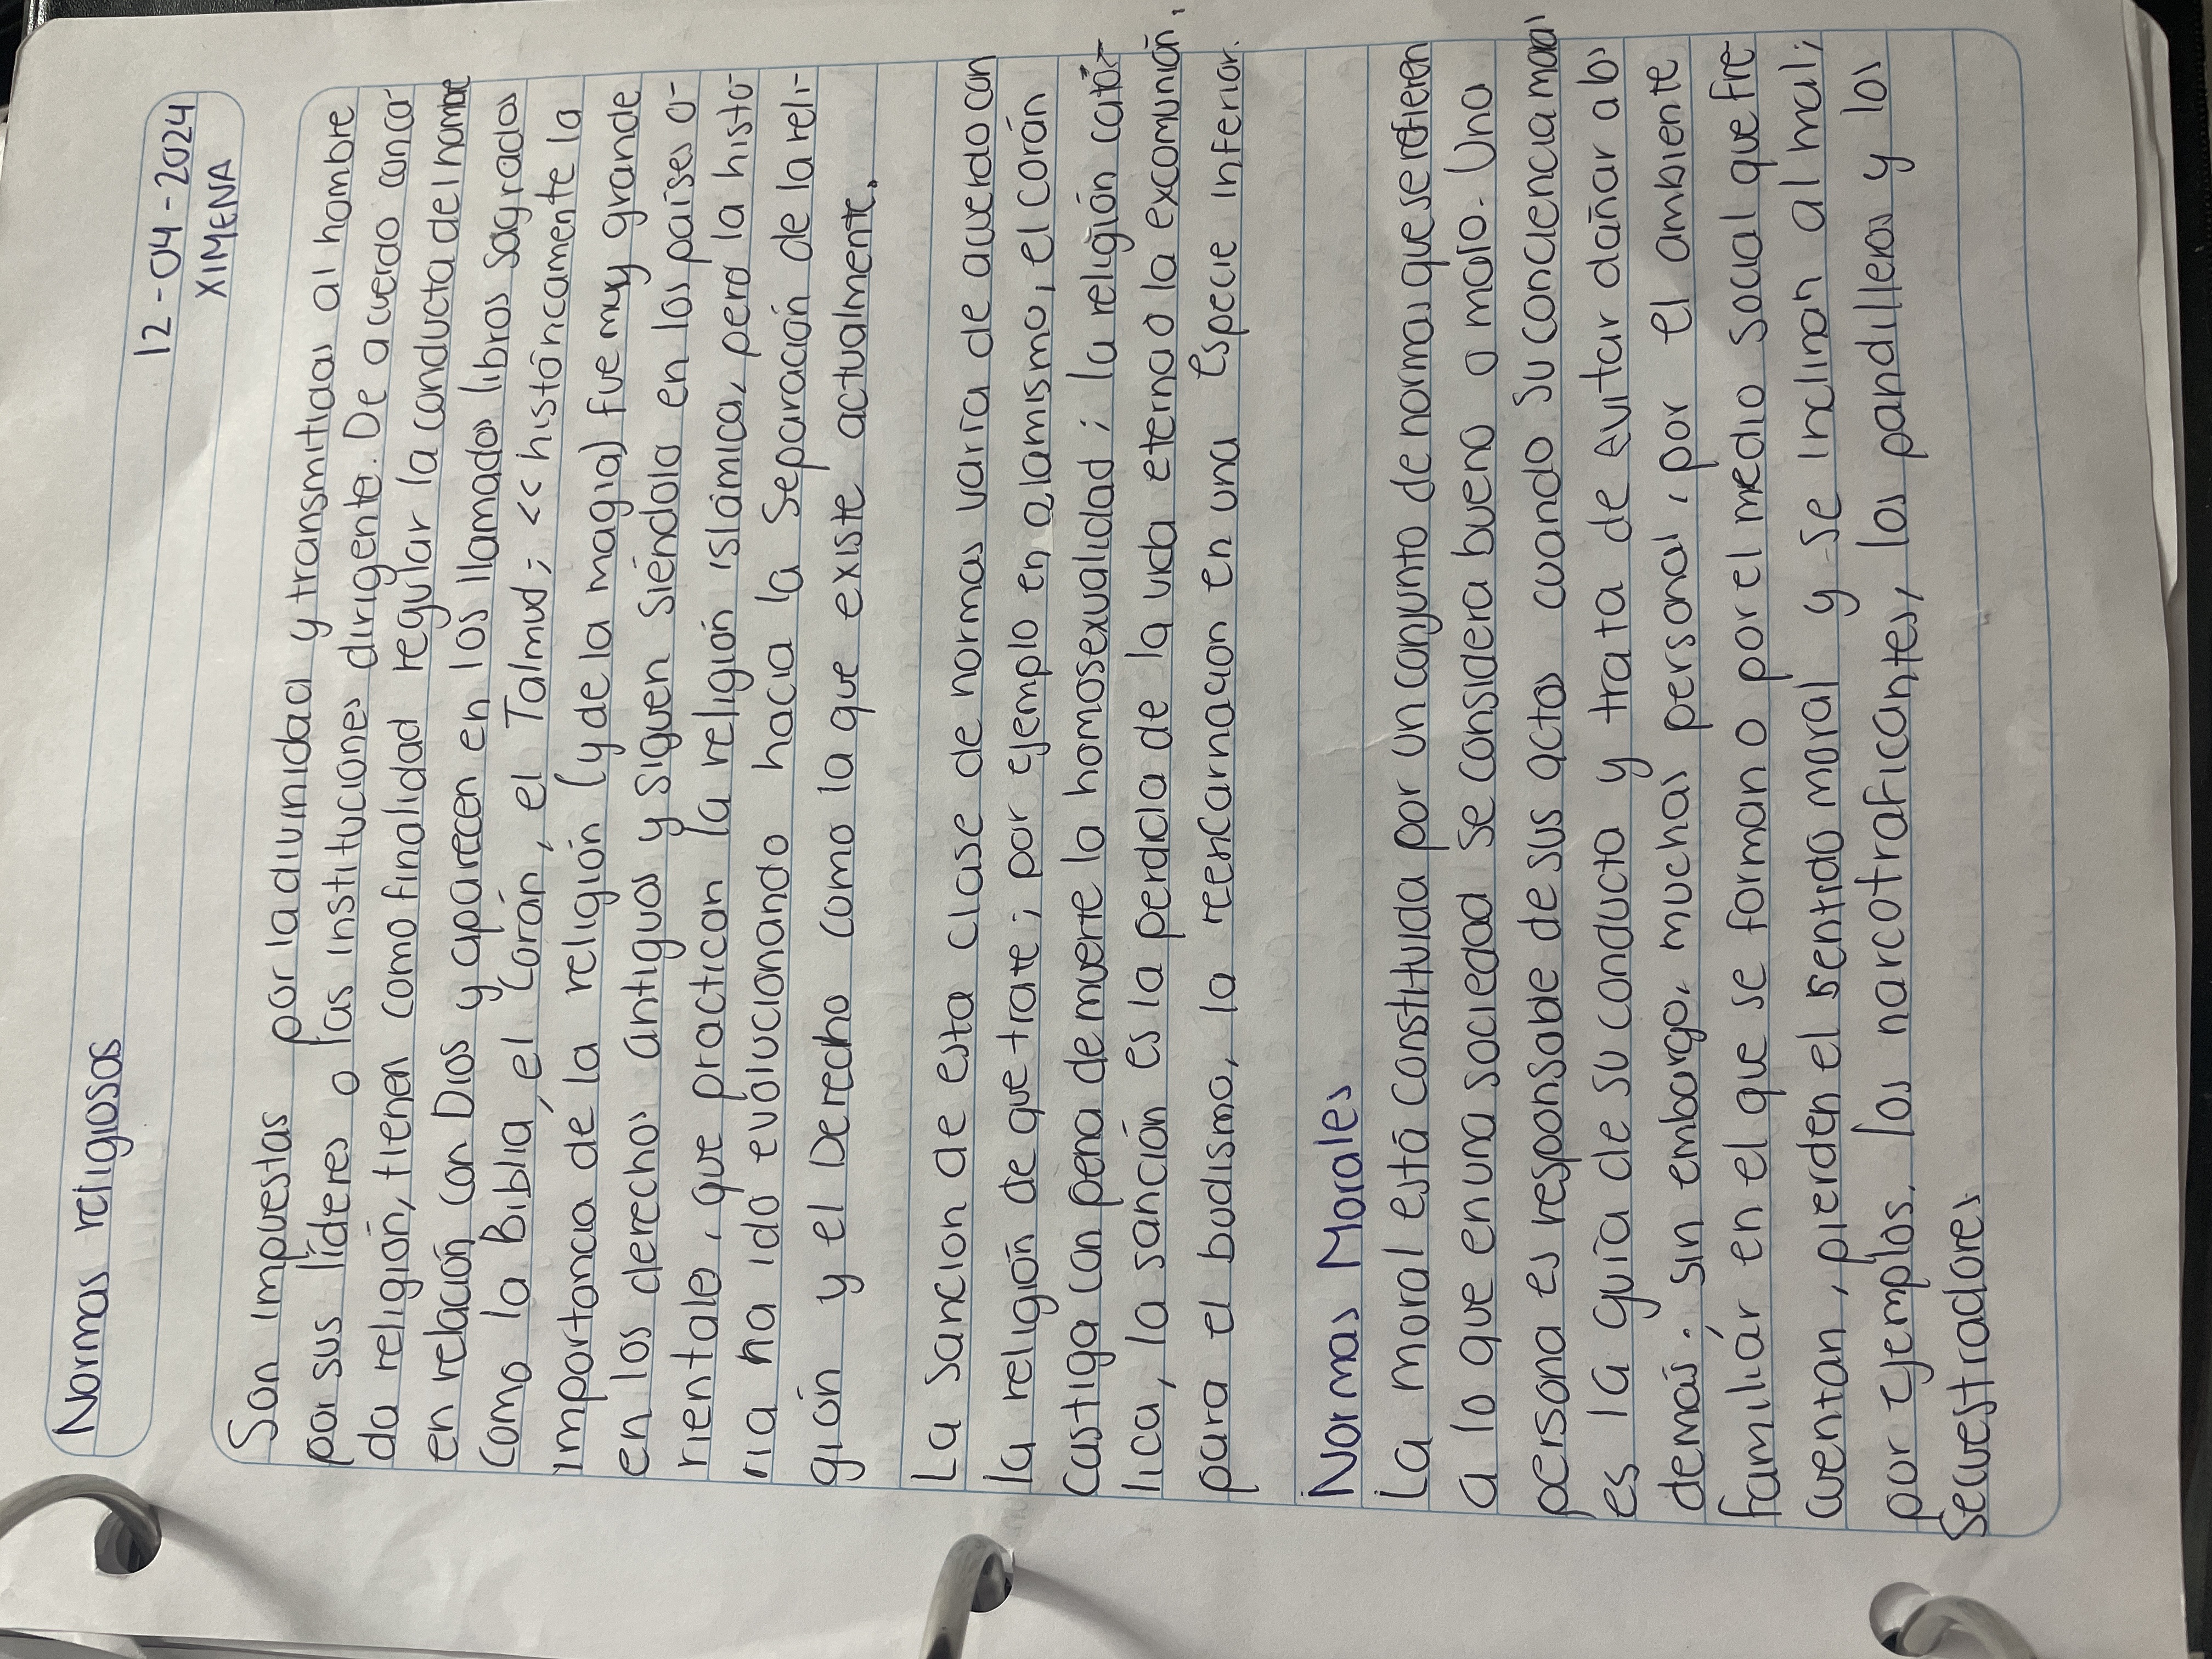 Normas religiosas
12-04-2024
XIMENA
Son impuestas por la divinidad y transmitidas al hombre
por sus líderes o las instituciones dirigente. De acuerdo con ca-
da religión, tienen como finalidad regular la conducta del hombre
en relación con Dios y aparecen en los llamados libros sagrados
como la Biblia, el Corán, el Talmud; << históricamente la
importancia de la religión (y de la magia) fue muy grande
en los derechos antiguos y siguen siéndolo en los países o-
rientales, que practican la religión islámica, pero la histo-
ria ha ido evolucionando hacia la separación de la reli-
gión y el Derecho como la que existe actualmente.
La sancion de esta clase de normas varía de acuerdo con
la religión de que trate; por ejemplo en alamismo, el corán
castiga con pena de muerte la homosexualidad; la religión cató-
lica, la sanción es la perdida de la vida eterna o la excomunión,
para el budismo, la reencarnacion en una especie inferior.
Normas Morales
La moral está constituida por un conjunto de normas que se refieren
a lo que en una sociedad se considera bueno o malo. Una
persona es responsable de sus actos cuando su conciencia moral
es la guía de su conducta y trata de evitar dañar a los
demás. sin embargo, muchas personal, por el ambiente
familiár en el que se forman o por el medio social que fre
cuentan, pierden el sentido moral y se inclinan al mal;
por ejemplos. los narcotraficantes, los pandilleros y los
Secuestradores